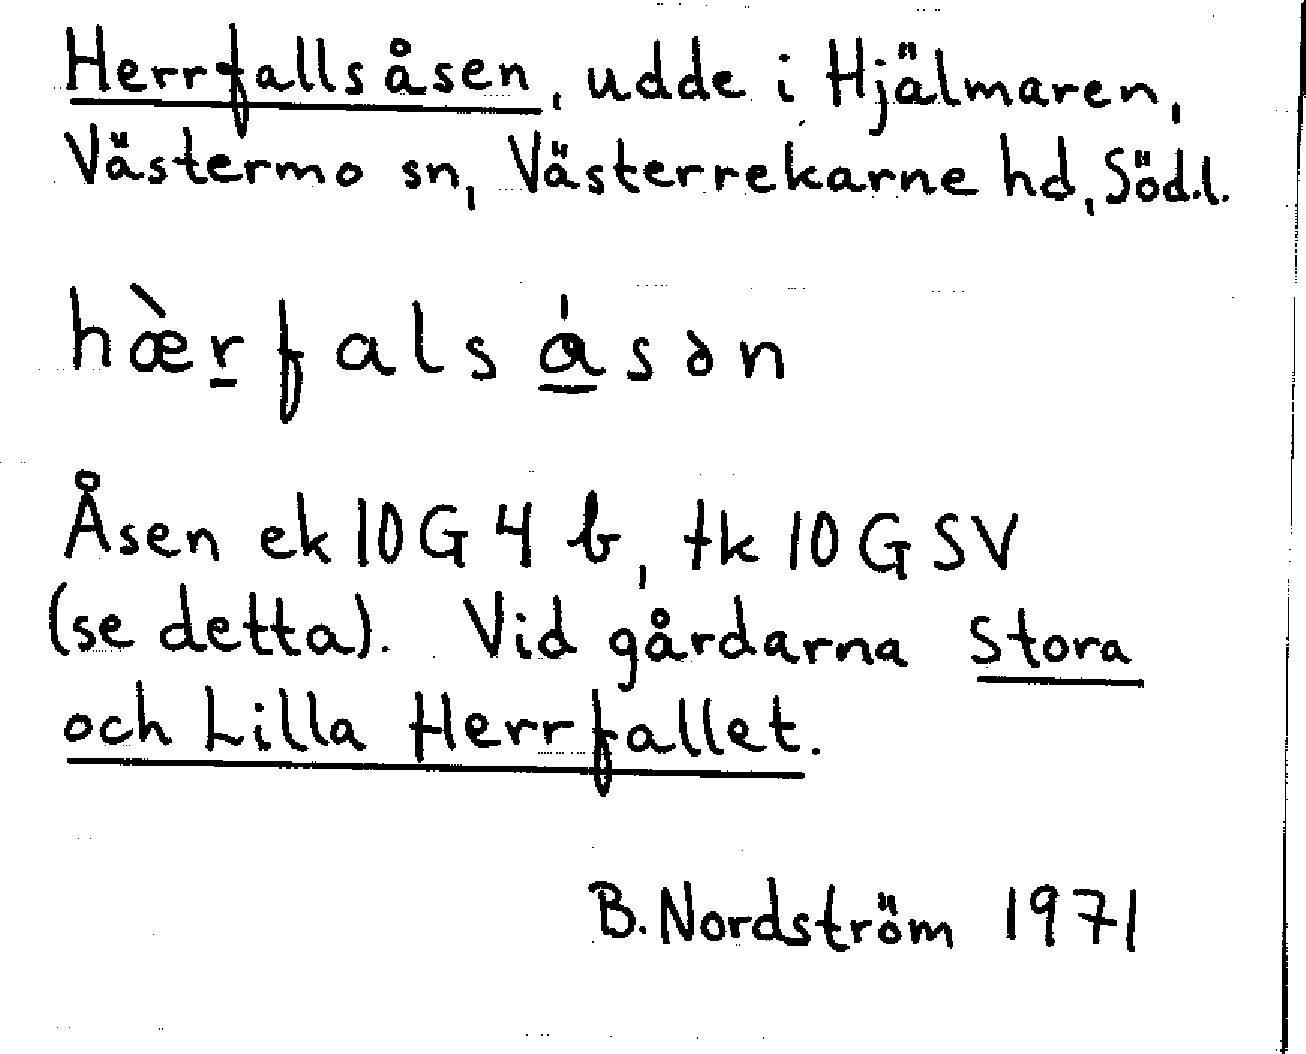 Herrfallsåsen, udde i Hjälmaren,
Västermo sn, Västerrekarne hd, Söd.l.
hæ̀r̲falsá̲sən
Åsen ek 10G 4 b, tk 10G SV
(se detta). Vid gårdarna Stora
och Lilla Herrfallet.
B. Nordström 1971